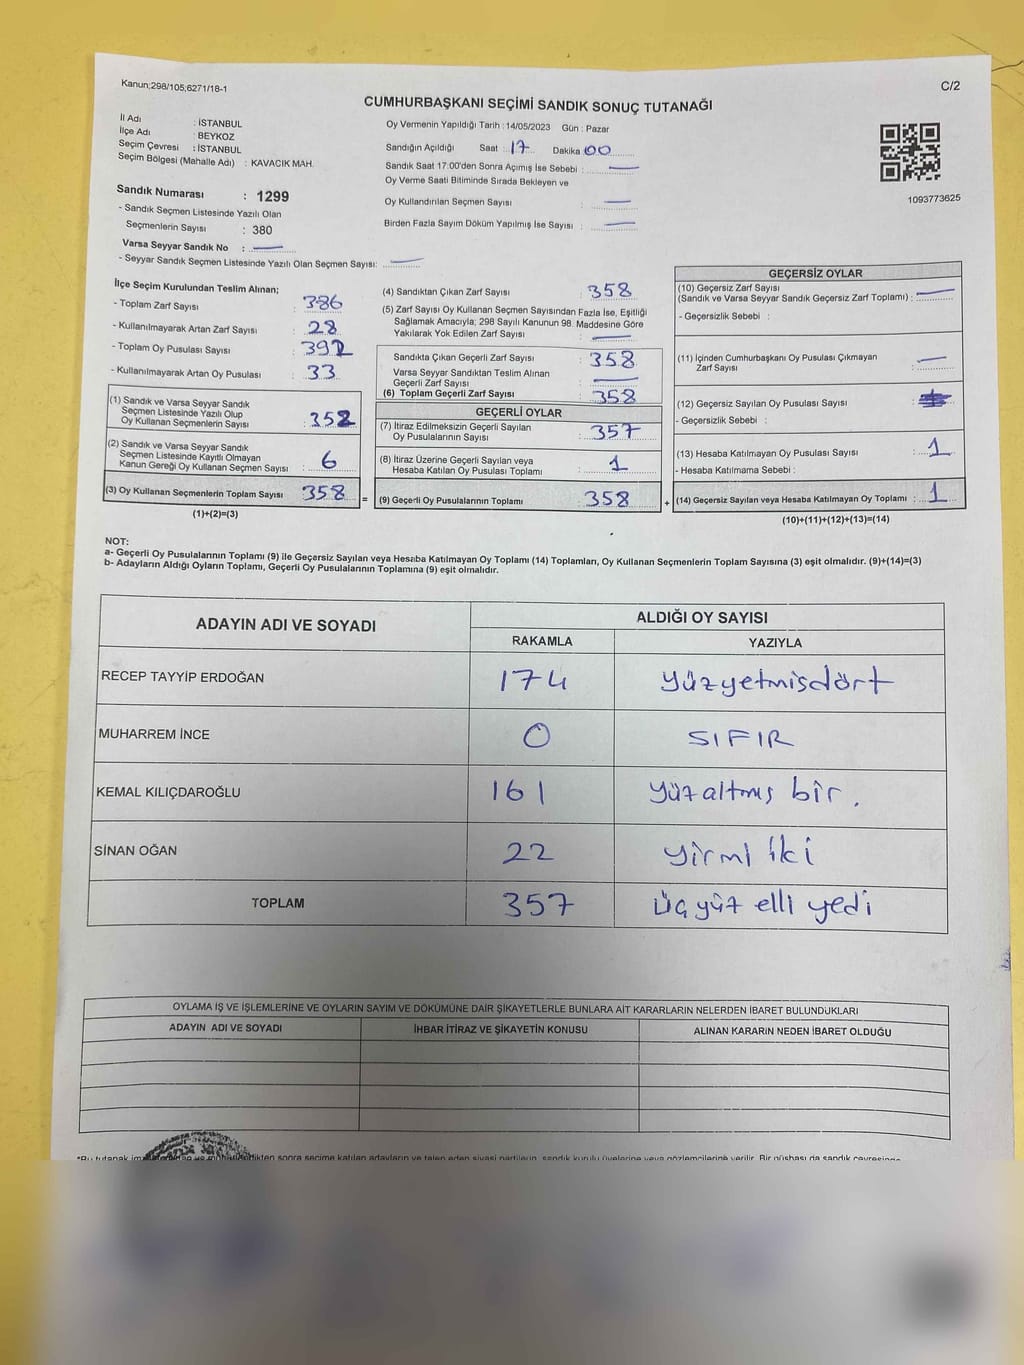 Kanun;298/105;6271/18-1
C/2
CUMHURBAŞKANI SEÇİMİ SANDIK SONUÇ TUTANAĞI
İl Adı : İSTANBUL
İlçe Adı : BEYKOZ
Seçim Çevresi : İSTANBUL
Seçim Bölgesi (Mahalle Adı) : KAVACIK MAH.
Sandık Numarası : 1299
- Sandık Seçmen Listesinde Yazılı Olan
Seçmenlerin Sayısı : 380
Varsa Seyyar Sandık No : —
- Seyyar Sandık Seçmen Listesinde Yazılı Olan Seçmen Sayısı: —
Oy Vermenin Yapıldığı Tarih : 14/05/2023 Gün : Pazar
Sandığın Açıldığı Saat : 17 Dakika : 00
Sandık Saat 17:00'den Sonra Açımış İse Sebebi : —
Oy Verme Saati Bitiminde Sırada Bekleyen ve
Oy Kullandırılan Seçmen Sayısı : —
Birden Fazla Sayım Döküm Yapılmış İse Sayısı : —
1093773625
İlçe Seçim Kurulundan Teslim Alınan;
- Toplam Zarf Sayısı : 386
- Kullanılmayarak Artan Zarf Sayısı : 28
- Toplam Oy Pusulası Sayısı : 392
- Kullanılmayarak Artan Oy Pusulası : 33
(1) Sandık ve Varsa Seyyar Sandık
Seçmen Listesinde Yazılı Olup
Oy Kullanan Seçmenlerin Sayısı : 352
(2) Sandık ve Varsa Seyyar Sandık
Seçmen Listesinde Kayıtlı Olmayan
Kanun Gereği Oy Kullanan Seçmen Sayısı : 6
(3) Oy Kullanan Seçmenlerin Toplam Sayısı : 358 =
(1)+(2)=(3)
(4) Sandıktan Çıkan Zarf Sayısı : 358
(5) Zarf Sayısı Oy Kullanan Seçmen Sayısından Fazla İse, Eşitliği
Sağlamak Amacıyla; 298 Sayılı Kanunun 98. Maddesine Göre
Yakılarak Yok Edilen Zarf Sayısı : —
Sandıkta Çıkan Geçerli Zarf Sayısı : 358
Varsa Seyyar Sandıktan Teslim Alınan
Geçerli Zarf Sayısı : —
(6) Toplam Geçerli Zarf Sayısı : 358
GEÇERLİ OYLAR
(7) İtiraz Edilmeksizin Geçerli Sayılan
Oy Pusulalarının Sayısı : 357
(8) İtiraz Üzerine Geçerli Sayılan veya
Hesaba Katılan Oy Pusulası Toplamı : 1
(9) Geçerli Oy Pusulalarının Toplamı : 358 +
GEÇERSİZ OYLAR
(10) Geçersiz Zarf Sayısı
(Sandık ve Varsa Seyyar Sandık Geçersiz Zarf Toplamı) : —
- Geçersizlik Sebebi :
(11) İçinden Cumhurbaşkanı Oy Pusulası Çıkmayan
Zarf Sayısı : —
(12) Geçersiz Sayılan Oy Pusulası Sayısı :
- Geçersizlik Sebebi :
(13) Hesaba Katılmayan Oy Pusulası Sayısı : 1
- Hesaba Katılmama Sebebi :
(14) Geçersiz Sayılan veya Hesaba Katılmayan Oy Toplamı : 1
(10)+(11)+(12)+(13)=(14)
NOT:
a- Geçerli Oy Pusulalarının Toplamı (9) ile Geçersiz Sayılan veya Hesaba Katılmayan Oy Toplamı (14) Toplamları, Oy Kullanan Seçmenlerin Toplam Sayısına (3) eşit olmalıdır. (9)+(14)=(3)
b- Adayların Aldığı Oyların Toplamı, Geçerli Oy Pusulalarının Toplamına (9) eşit olmalıdır.
ADAYIN ADI VE SOYADI ALDIĞI OY SAYISI
RAKAMLA YAZIYLA
RECEP TAYYİP ERDOĞAN 174 Yüzyetmisdört
MUHARREM İNCE 0 SIFIR
KEMAL KILIÇDAROĞLU 161 Yüz altmış bir.
SİNAN OĞAN 22 Yirmi iki
TOPLAM 357 Üç yüz elli yedi
OYLAMA İŞ VE İŞLEMLERİNE VE OYLARIN SAYIM VE DÖKÜMÜNE DAİR ŞİKAYETLERLE BUNLARA AİT KARARLARIN NELERDEN İBARET BULUNDUKLARI
ADAYIN ADI VE SOYADI İHBAR İTİRAZ VE ŞİKAYETİN KONUSU ALINAN KARARIN NEDEN İBARET OLDUĞU
sonra seçime katılan adayların ve talep eden siyasi partilerin, sandık kurulu üyelerine veya gözlemcilerine verilir. Bir nüshası da sandık çevresinde